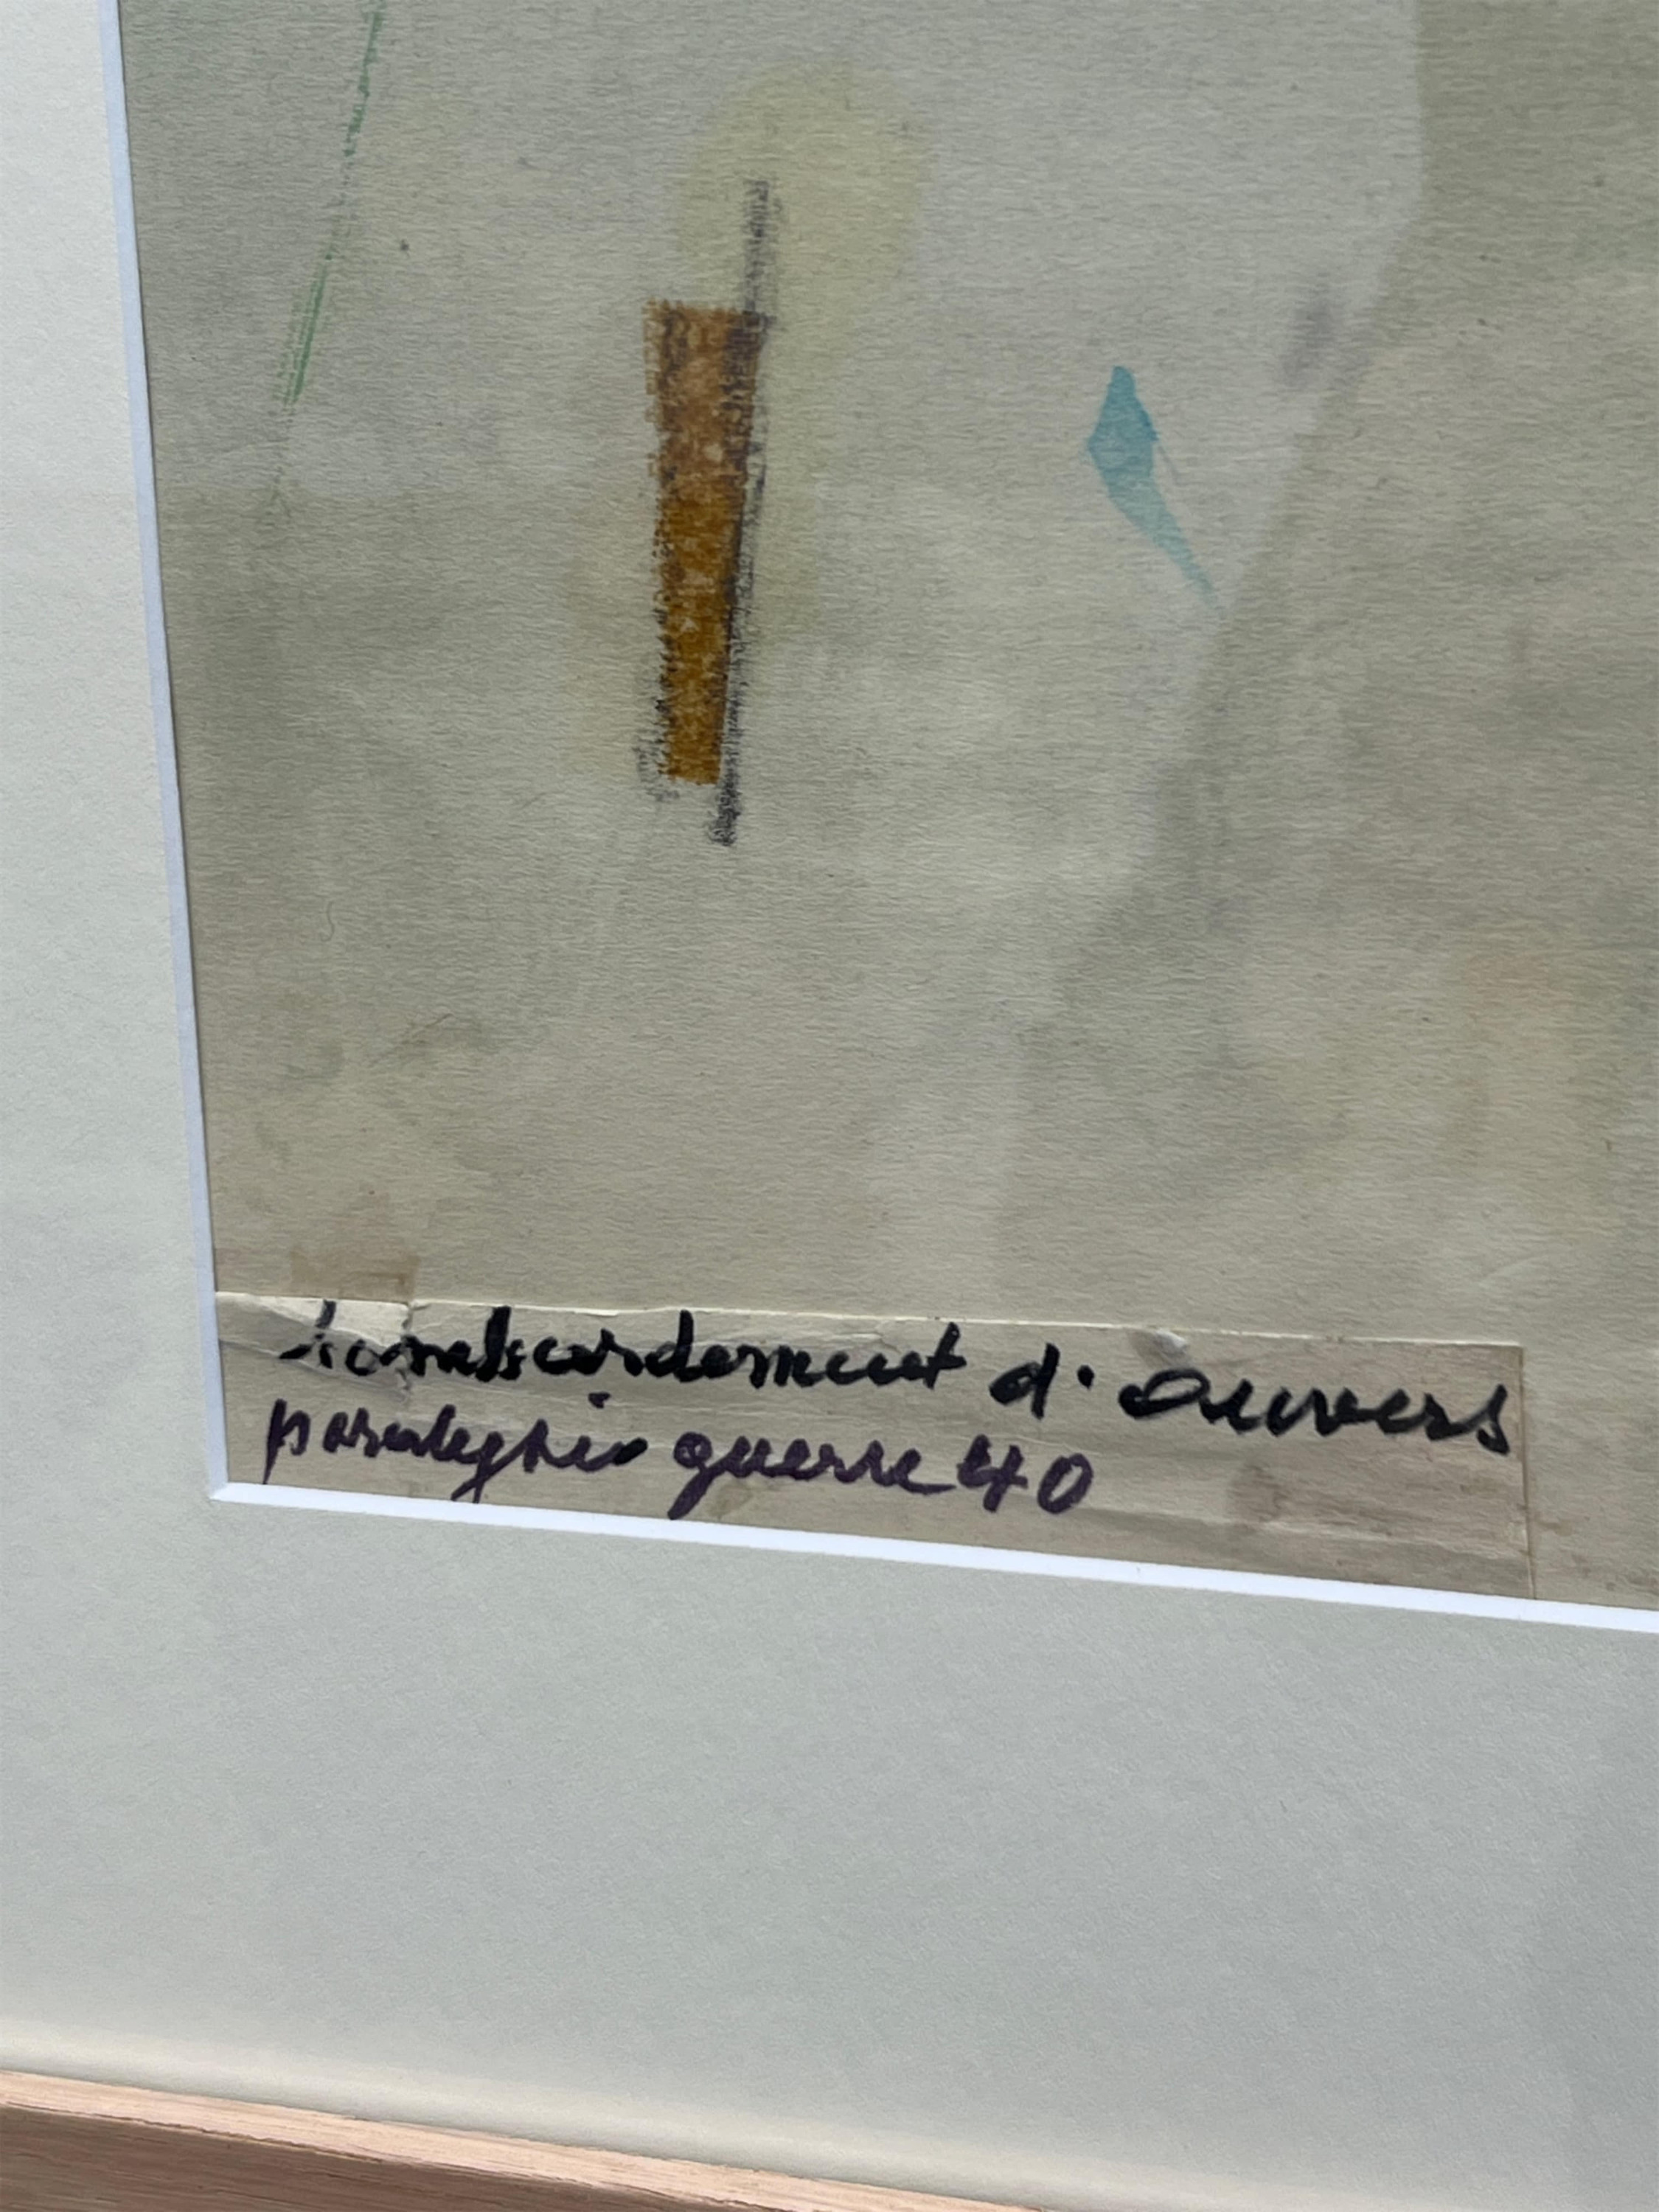 bombardement d'Anvers
guerre 40